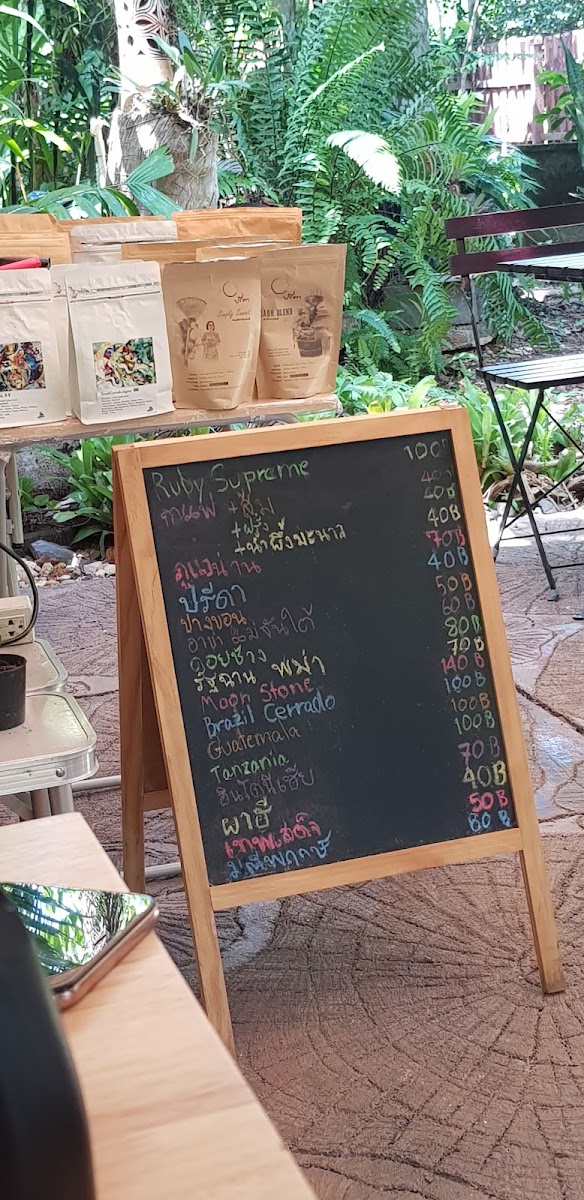 Simply Sweet
DARK BLEND
Ruby Supreme 100฿
กาแฟ +ส้ม 40฿
+ฝรั่ง 40B
+น้ำผึ้งมะนาว 40B
ภูแวน่าน 70B
ปรีดา 40B
ปางขอน 50B
อาข่า แม่จันใต้ 60B
ดอยช้าง 80B
รัฐฉาน พม่า 70B
Moon Stone 140B
Brazil Cerrado 100B
Guatemala 100B
Tanzania 100B
อินโดนีเซีย 70B
ผาฮี้ 40B
เทพเสด็จ 50B
มณีพฤกษ์ 80B